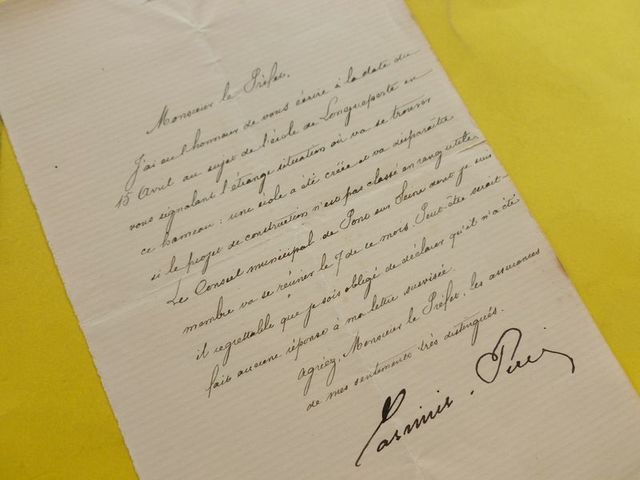 Monsieur le Préfet,
J'ai eu l'honneur de vous écrire à la date du
15 Avril au sujet de l'école de Longueperte en
vous signalant l'étrange situation où va se trouver
ce hameau : une école a été créée et va disparaître
si le projet de construction n'est pas classé en rang utile.
Le Conseil municipal de Pont sur Seine dont je suis
membre va se réunir le 7 de ce mois. Peut-être serait-
il regrettable que je sois obligé de déclarer qu'il n'a été
fait aucune réponse à ma lettre susvisée.
Agréez, Monsieur le Préfet, les assurances
de mes sentiments très distingués.
Casimir. Perier